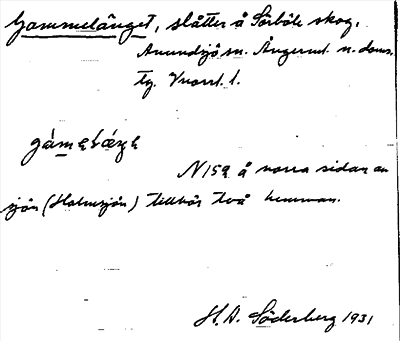 Gammelänget, slåtter å Sörböle skog,
Anundsjö sn. Ångerml. n. doms.
tg. Vnorrl. l.
N 159 å norra sidan av
sjön (Holmsjön) tillhör två hemman.
H. D. Söderberg 1931